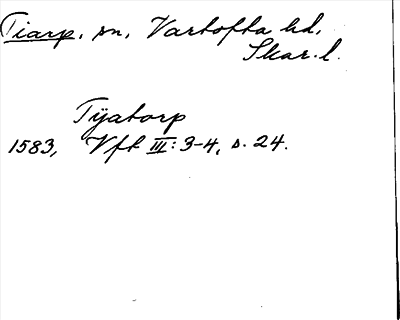 Tiarp, sn, Vartofta hd,
Skar. l.
Tÿatorp
1583, Vft III: 3-4, s. 24.